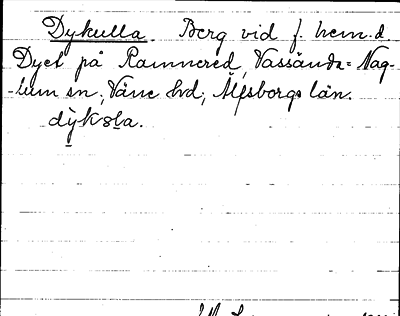 Dykulla. Berg vid f. hem. d
Dyet på Rannered, Vassända-Nag-
-lum sn, Väne hd, Älfsborgs län.